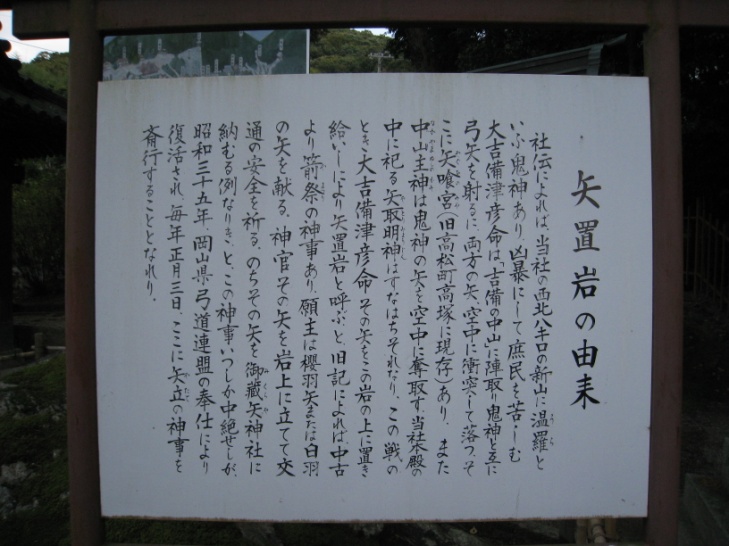 矢置岩の由来
社伝によれば、当社の西北八キロの新山に温羅と
いふ鬼神あり、凶暴にして庶民を苦しむ
大吉備津彦命は「吉備の中山」に陣取り鬼神と互に
弓矢を射るに、両方の矢空中に衝突して落つ。そ
こに矢喰宮(旧高松町高塚に現存)あり、また
中山主神は鬼神の矢を空中に奪取す、当社本殿の
中に祀る矢取明神はすなはちそれなり。この戦の
とき大吉備津彦命、その矢をこの岩の上に置き
給いしにより矢置岩と呼ぶと、旧記によれば、中古
より箭祭の神事あり、願主は櫻羽矢または白羽
の矢を献る、神官その矢を岩上に立てて交
通の安全を祈る、のちその矢を御蔵矢神社に
納むる例なりき、と、この神事いつしか中絶せしが、
昭和三十五年、岡山県弓道連盟の奉仕により
復活され、毎年正月三日、ここに矢立の神事を
斎行することとなれり。